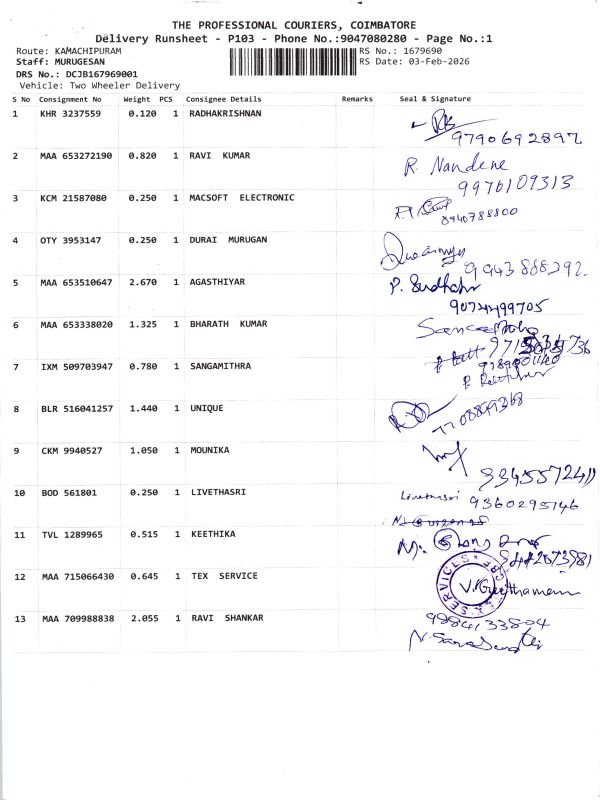 THE PROFESSIONAL COURIERS, COIMBATORE
Delivery Runsheet - P103 - Phone No.:9047080280 - Page No.:1
Route: KAMACHIPURAM RS No.: 1679690
Staff: MURUGESAN RS Date: 03-Feb-2026
DRS No.: DCJB167969001
Vehicle: Two Wheeler Delivery
S No Consignment No Weight PCS Consignee Details Remarks Seal & Signature
1 KHR 3237559 0.120 1 RADHAKRISHNAN
9790692897
2 MAA 653272190 0.820 1 RAVI KUMAR R. Nandene
9976109313
3 KCM 21587080 0.250 1 MACSOFT ELECTRONIC
8940788800
4 OTY 3953147 0.250 1 DURAI MURUGAN
9943888292
5 MAA 653510647 2.670 1 AGASTHIYAR P. Sudhakar
9074499705
6 MAA 653338020 1.325 1 BHARATH KUMAR
7 IXM 509703947 0.780 1 SANGAMITHRA
8 BLR 516041257 1.440 1 UNIQUE 7708869368
9 CKM 9940527 1.050 1 MOUNIKA
10 BOD 561801 0.250 1 LIVETHASRI Livethasri 9360295146
11 TVL 1289965 0.515 1 KEETHIKA
12 MAA 715066430 0.645 1 TEX SERVICE SERVICES
13 MAA 709988838 2.055 1 RAVI SHANKAR 9884133804